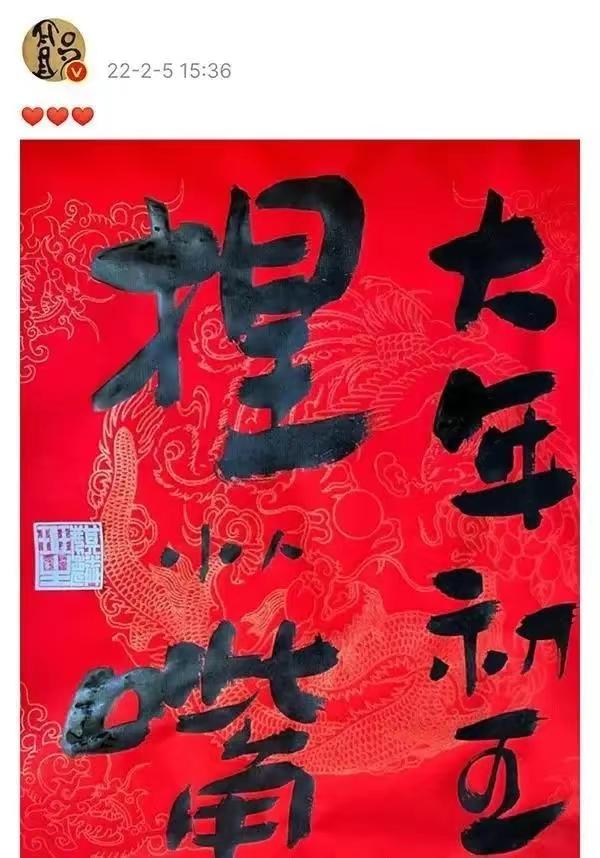 22-2-5 15:36
大年初五
捏小人嘴